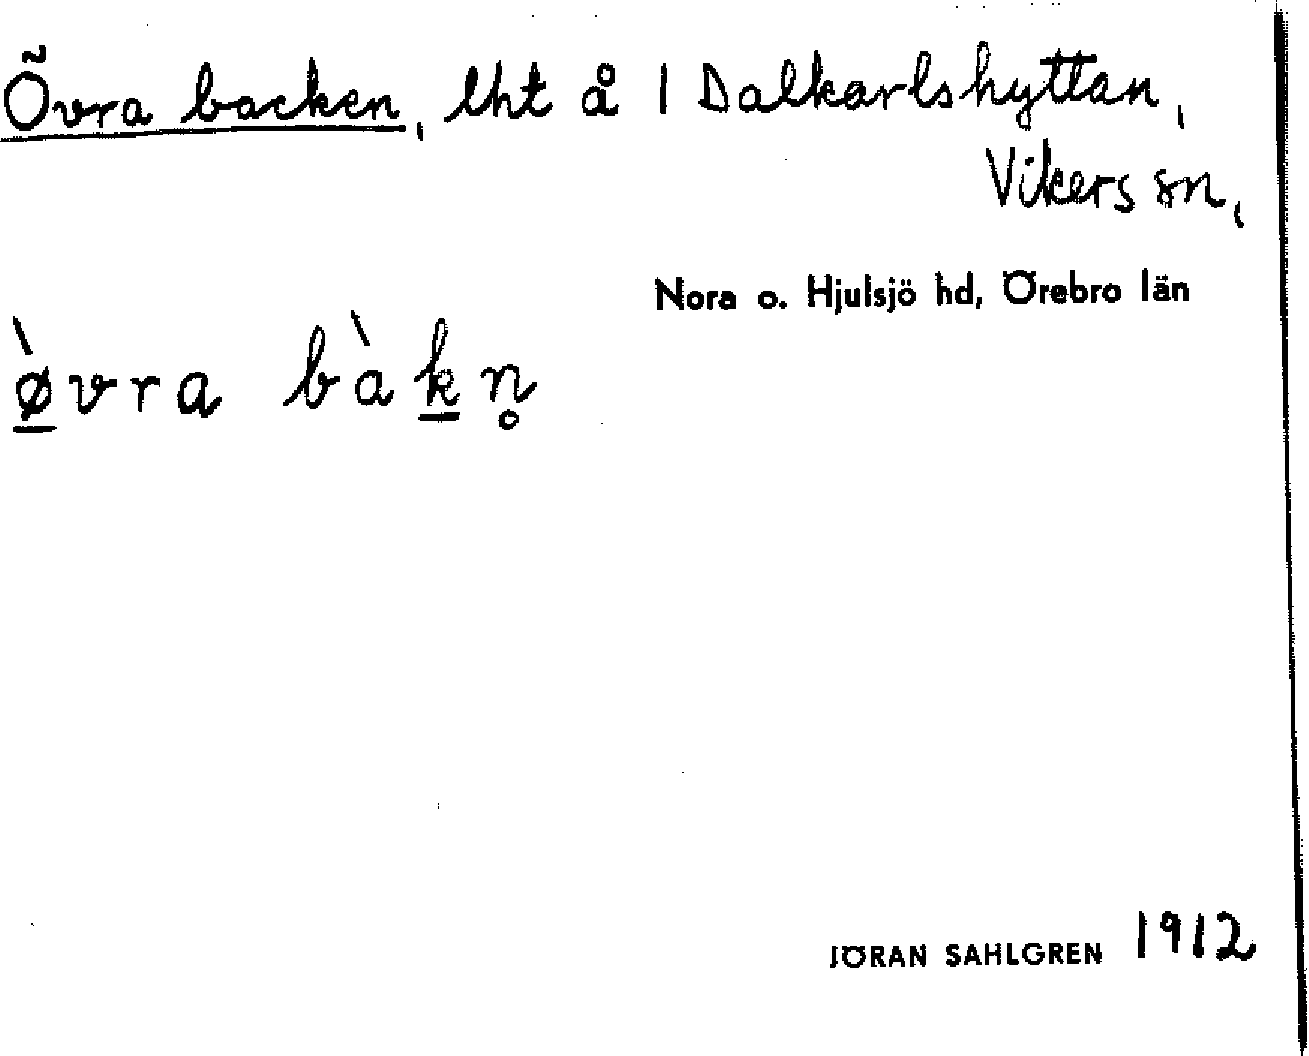 Övra backen, lht å 1 Dalkarlshyttan,
Vikers sn,
Nora o. Hjulsjö hd, Örebro län
ø̠̀vra bàk̠n̥
JÖRAN SAHLGREN 1912